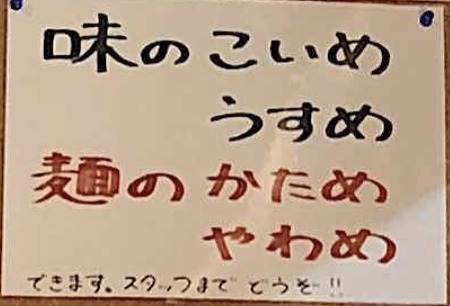 味のこいめ
うすめ
麺のかため
やわめ
できます。スタッフまでどうぞ!!